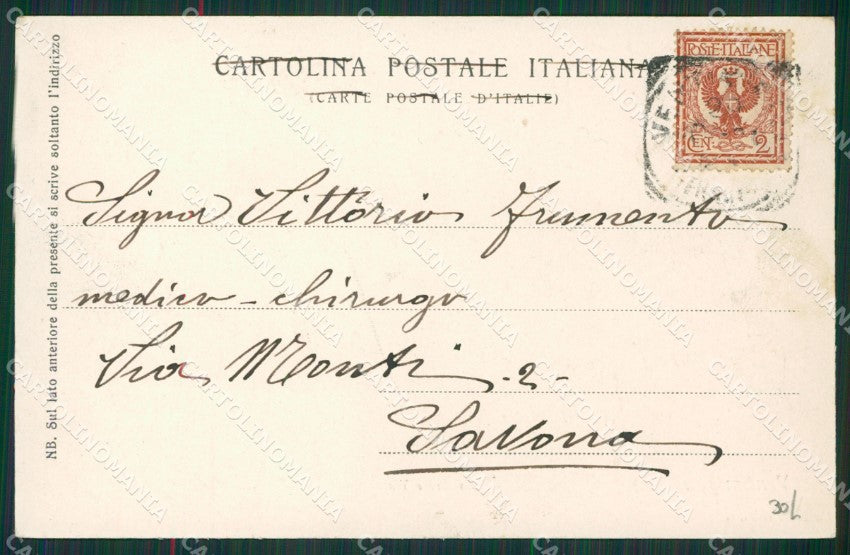 CARTOLINA POSTALE ITALIANA
(CARTE POSTALE D'ITALIE)
POSTE·ITALIANE
CEN. 2
Signor Vittorio Frumento
medico-chirurgo
Via Monti -2-
Savona
NB. Sul lato anteriore della presente si scrive soltanto l'indirizzo
30L
CARTOLINOMANIA